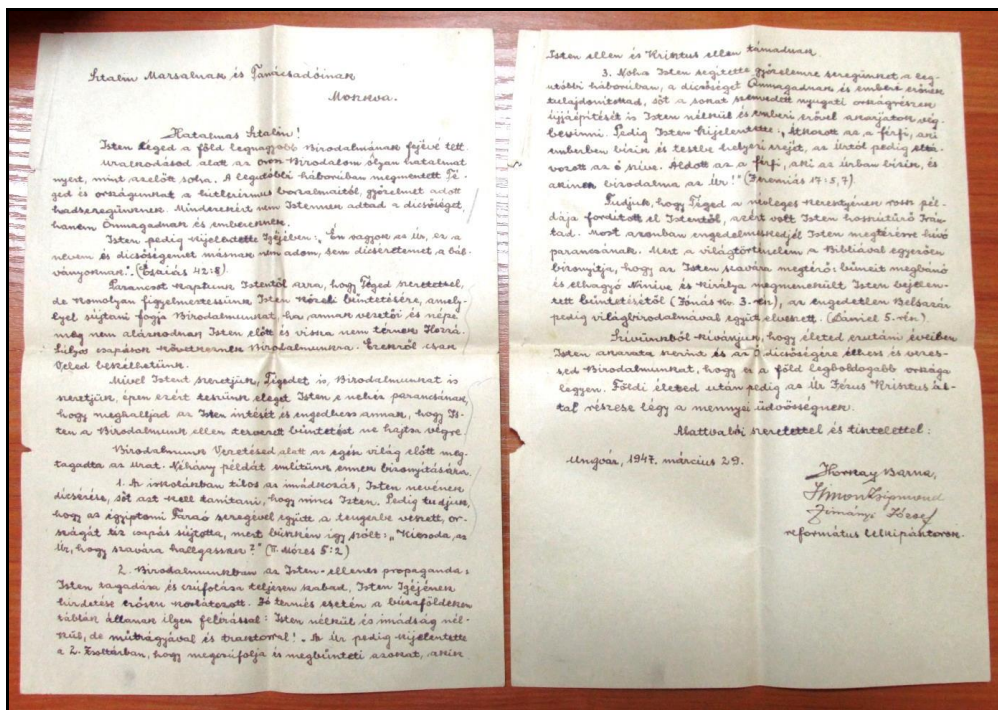 Sztalin Marsalnak és Tanácsadóinak
Moszkva.
Hatalmas Sztalin!
Isten téged a föld legnagyobb Birodalmának fejévé tett.
Uralkodásod alatt az orosz Birodalom olyan hatalmat
nyert, mint azelőtt soha. A legutóbbi háborúban megmentett Té-
ged és országunkat a hitlerizmus borzalmaitól, győzelmet adott
hadseregünknek. Mindezekért nem Istennek adtad a dicsőséget,
hanem Önmagadnak és embereknek.
Isten pedig kijelentette Igéjében: „Én vagyok az Úr, ez a
nevem és dicsőségemet másnak nem adom, sem dicséretemet a bál-
ványoknak". (Ésaiás 42:8)
Parancsot kaptunk Istentől arra, hogy Téged szeretettel,
de komolyan figyelmeztessünk Isten közeli büntetésére, amely-
lyel sújtani fogja Birodalmunkat, ha annak vezetői és népe
meg nem alázkodnak Isten előtt és vissza nem térnek Hozzá.
Súlyos csapások következnek Birodalmunkra. Ezekről csak
Veled beszélhetünk.
Mivel Istent szeretjük, Tégedet is, Birodalmunkat is
szeretjük, épen ezért teszünk eleget Isten e nehéz parancsának,
hogy meghalljad az Isten intését és engedhess annak, hogy Is-
ten a Birodalmunk ellen tervezett büntetést ne hajtsa végre.
Birodalmunk Vezetésed alatt az egész világ előtt meg-
tagadta az Urat. Néhány példát említünk ennek bizonyítására.
1. Az iskolákban tilos az imádkozás, Isten nevének
dícsérése, sőt azt kell tanítani, hogy nincs Isten. Pedig tudjuk,
hogy az égyiptomi Fáraó seregével együtt a tengerbe veszett, or-
szágát tíz csapás sújtotta, mert büszkén így szólt: „Kicsoda az
Úr, hogy szavára hallgassak?" (II. Mózes 5:2)
2. Birodalmunkban az Isten-ellenes propaganda:
Isten tagadása és csúfolása teljesen szabad, Isten Igéjének
hirdetése erősen korlátozott. Jó termés esetén a búzaföldeken
táblák állanak ilyen felírással: Isten nélkül és imádság nél-
kül, de műtrágyával és traktorral! Az Úr pedig kijelentette
a 2. Zsoltárban, hogy megcsúfolja és megbünteti azokat, akik
Isten ellen és Krisztus ellen támadnak.
3. Noha Isten segítette győzelemre seregünket a leg-
utóbbi háborúban, a dicsőséget Önmagadnak és emberi erőnek
tulajdonítottad, sőt a sokat szenvedett nyugati országrészek
újjáépítését is Isten nélkül és emberi erővel akarjátok vég-
bevinni. Pedig Isten kijelentette: „Átkozott az a férfi, aki
emberben bízik és testbe helyezi erejét, az Úrtól pedig eltá-
vozott az ő szíve. Áldott az a férfi, aki az Úrban bízik, és
akinek bizodalma az Úr!" (Jeremiás 17:5,7).
Tudjuk, hogy Téged a névleges keresztyének rossz pél-
dája fordított el Istentől, azért volt Isten hosszútűrő Irán-
tad. Most azonban engedelmeskedjél Isten megtérésre hívó
parancsának. Mert a világtörténelem a Bibliával egyezően
bizonyítja, hogy az Isten szavára megtérő: bűneit megbánó
és elhagyó Ninive és királya megmenekült Isten bejelen-
tett büntetésétől (Jónás Kv. 3.-rész), az engedetlen Belsazár
pedig világbirodalmával együtt elveszett. (Dániel 5.-rész).
Szívünkből kívánjuk, hogy életed ezutáni éveiben
Isten akarata szerint és az Ő dicsőségére élhess és vezes-
sed Birodalmunkat, hogy ez a föld legboldogabb országa
legyen. Földi életed után pedig az Úr Jézus Krisztus ál-
tal részese légy a mennyei üdvösségnek.
Alattvalói szeretettel és tisztelettel:
Ungvár, 1947. március 29.
Horkay Barna,
Simon Zsigmond
Zimányi József
református lelkipásztorok.